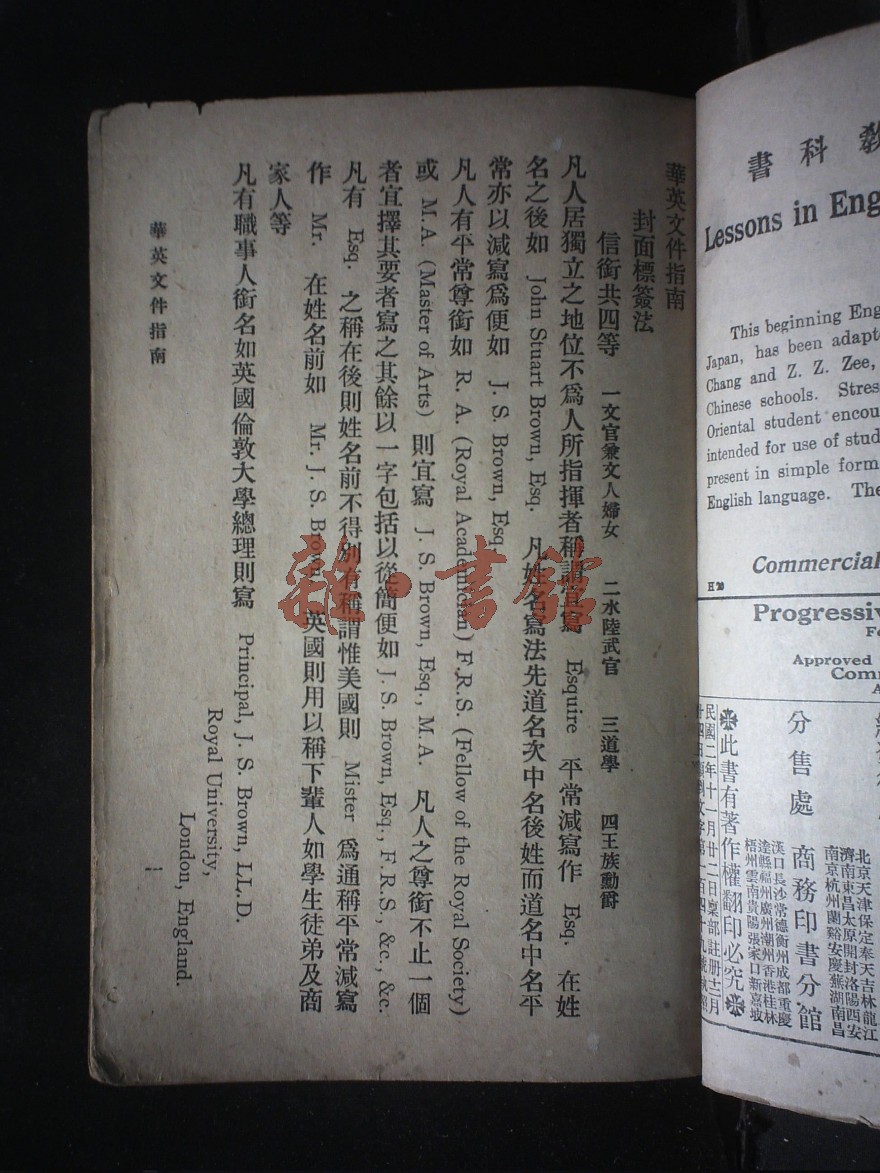 華英文件指南
封面標簽法
信銜共四等 一文官兼文人婦女 二水陸武官 三道學 四王族勳爵
凡人居獨立之地位不爲人所指揮者稱謂宜寫 Esquire 平常減寫作 Esq. 在姓
名之後如 John Stuart Brown, Esq. 凡姓名寫法先道名次中名後姓而道名中名平
常亦以減寫爲便如 J. S. Brown, Esq.
凡人有平常尊銜如 R. A. (Royal Academician) F.R.S. (Fellow of the Royal Society)
或 M.A. (Master of Arts) 則宜寫 J. S. Brown, Esq., M.A. 凡人之尊銜不止一個
者宜擇其要者寫之其餘以一字包括以從簡便如 J. S. Brown, Esq., F.R.S., &c., &c.
凡有 Esq. 之稱在後則姓名前不得別有稱謂惟美國則 Mister 爲通稱平常減寫
作 Mr. 在姓名前如 Mr. J. S. Brown 英國則用以稱下輩人如學生徒弟及商
家人等
凡有職事人銜名如英國倫敦大學總理則寫 Principal, J. S. Brown, LL.D.
Royal University,
London, England.
華英文件指南
一
雜·書館
教科書
Lessons in Eng
This beginning Eng
Japan, has been adapte
Chang and Z. Z. Zee,
Chinese schools. Stres
Oriental student encou
intended for use of stud
present in simple form
English language. The
Commercial
H 20
Progressiv
Fo
Approved
Com
A
分售處 商務印書分館
北京天津保定奉天吉林龍江
濟南東昌太原開封洛陽西安
南京杭州蘭谿安慶蕪湖南昌
漢口長沙常德衡州成都重慶
福州廣州潮州香港桂林
梧州雲南貴陽張家口新嘉坡
此書有著作權翻印必究
民國二年十月廿二日稟部註册十二月